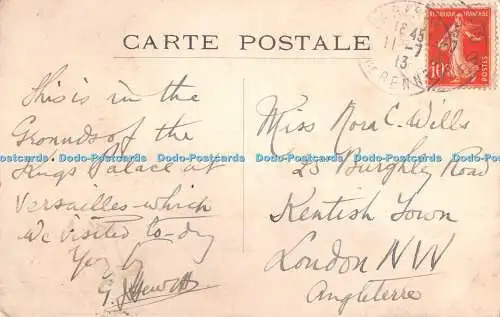 CARTE POSTALE
REPUBLIQUE FRANÇAISE
10
POSTES
18 45
11 - 7
13
RENNES
This is in the
Grounds of the
Kings Palace at
Versailles - which
we visited to-day
G. Hewitt
Miss Nora C. Wills
23 Burghley Road
Kentish Town
London NW
Angleterre
Dodo-Postcards Dodo-Postcards Dodo-Postcards Dodo-Postcards Dodo-Postcards
Dodo-Postcards Dodo-Postcards Dodo-Postcards Dodo-Postcards